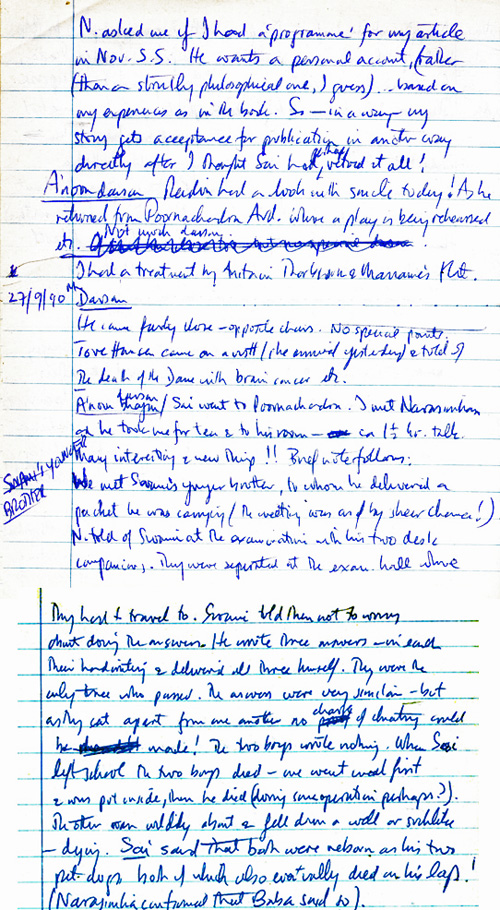 N. asked me if I had a 'programme' for my article
in Nov. S.S. He wants a personal account, (rather
than a strictly philosophical one, I guess)... based on
my experiences as in the book. So – in a way – my
story gets acceptance for publication in another way
directly after I thought Sai had vetoed it all!
A'noon darsan had a look with smile today! As he
returned from Poornachandra Aud. where a play is being rehearsed
etc. Not much darsan.
I had a treatment by in Flat.
27/9/90 Darsan
He came fairly close – opposite chairs. No special points.
Tove Hansen came on a visit (she arrived yesterday) & told of
the death of the Dane with brain cancer etc.
A'noon darsan bhajan / Sai went to Poornachandra. I met Narasimhan
he took me for tea & to his room – ca 1½ hr. talk.
Many interesting & new things!! Brief note follows:
SWAMI'S YOUNGER
BROTHER
We met Swami's younger brother, to whom he delivered a
packet he was carrying (the meeting was by sheer chance!)
N. told of Swami at the examinations with his two desk
companions. They were separated at the exam. hall where
They had to travel to. Swami told them not to worry
about doing the answers. He wrote three answers – in each
their handwriting & delivered all three himself. They were the
only three who passed. The answers were very similar – but
as they sat apart from one another no charge of cheating could
be made! The two boys wrote nothing. When Sai
left school the two boys died – one went mad first
& was put inside, then he died (during some operation perhaps?).
The other ran wildly about & fell down a well or suchlike
– dying. Sai said that both were reborn as his two
pet dogs both of which also eventually died on his lap!
(Narasimhan confirmed that Baba said so).